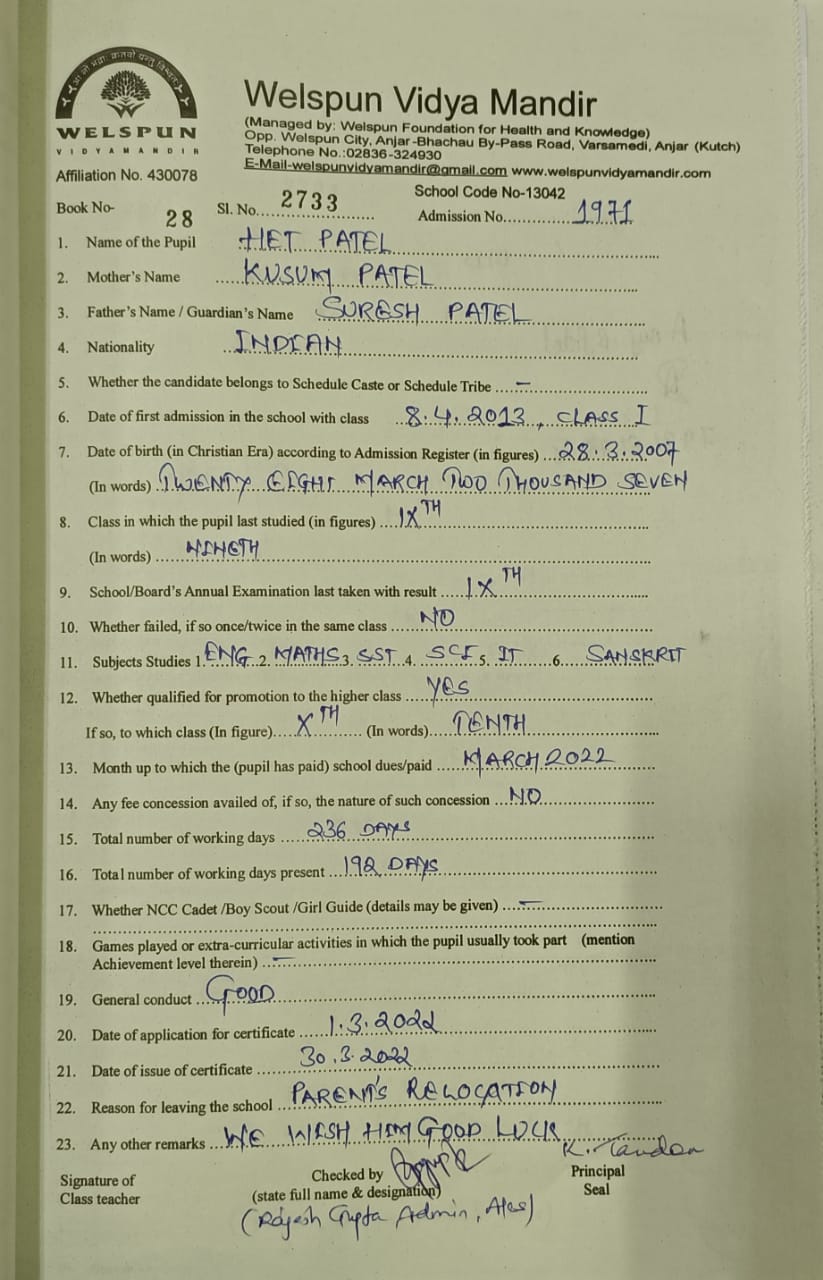 आ नो भद्राः क्रतवो यन्तु विश्वतः
WELSPUN
VIDYAMANDIR
Affiliation No. 430078
Welspun Vidya Mandir
(Managed by: Welspun Foundation for Health and Knowledge)
Opp. Welspun City, Anjar-Bhachau By-Pass Road, Varsamedi, Anjar (Kutch)
Telephone No.:02836-324930
E-Mail-welspunvidyamandir@gmail.com www.welspunvidyamandir.com
School Code No-13042
Book No- 28 Sl. No. 2733 Admission No. 1971
1. Name of the Pupil HET PATEL
2. Mother's Name KUSUM PATEL
3. Father's Name / Guardian's Name SURESH PATEL
4. Nationality INDIAN
5. Whether the candidate belongs to Schedule Caste or Schedule Tribe —
6. Date of first admission in the school with class 8.4.2013, CLASS I
7. Date of birth (in Christian Era) according to Admission Register (in figures) 28.3.2007
(In words) TWENTY EIGHT MARCH TWO THOUSAND SEVEN
8. Class in which the pupil last studied (in figures) IX TH
(In words) NINETH
9. School/Board's Annual Examination last taken with result IX TH
10. Whether failed, if so once/twice in the same class NO
11. Subjects Studies 1. ENG 2. MATHS 3. SST 4. SCI 5. IT 6. SANSKRIT
12. Whether qualified for promotion to the higher class YES
If so, to which class (In figure) X TH (In words) TENTH
13. Month up to which the (pupil has paid) school dues/paid MARCH 2022
14. Any fee concession availed of, if so, the nature of such concession NO
15. Total number of working days 236 DAYS
16. Total number of working days present 192 DAYS
17. Whether NCC Cadet /Boy Scout /Girl Guide (details may be given) —
18. Games played or extra-curricular activities in which the pupil usually took part (mention
Achievement level therein) —
19. General conduct GOOD
20. Date of application for certificate 1.3.2022
21. Date of issue of certificate 30.3.2022
22. Reason for leaving the school PARENT'S RELOCATION
23. Any other remarks WE WISH HIM GOOD LUCK
K. Tandon
Signature of Checked by Principal
Class teacher (state full name & designation) Seal
(Rajesh Gupta Admin,